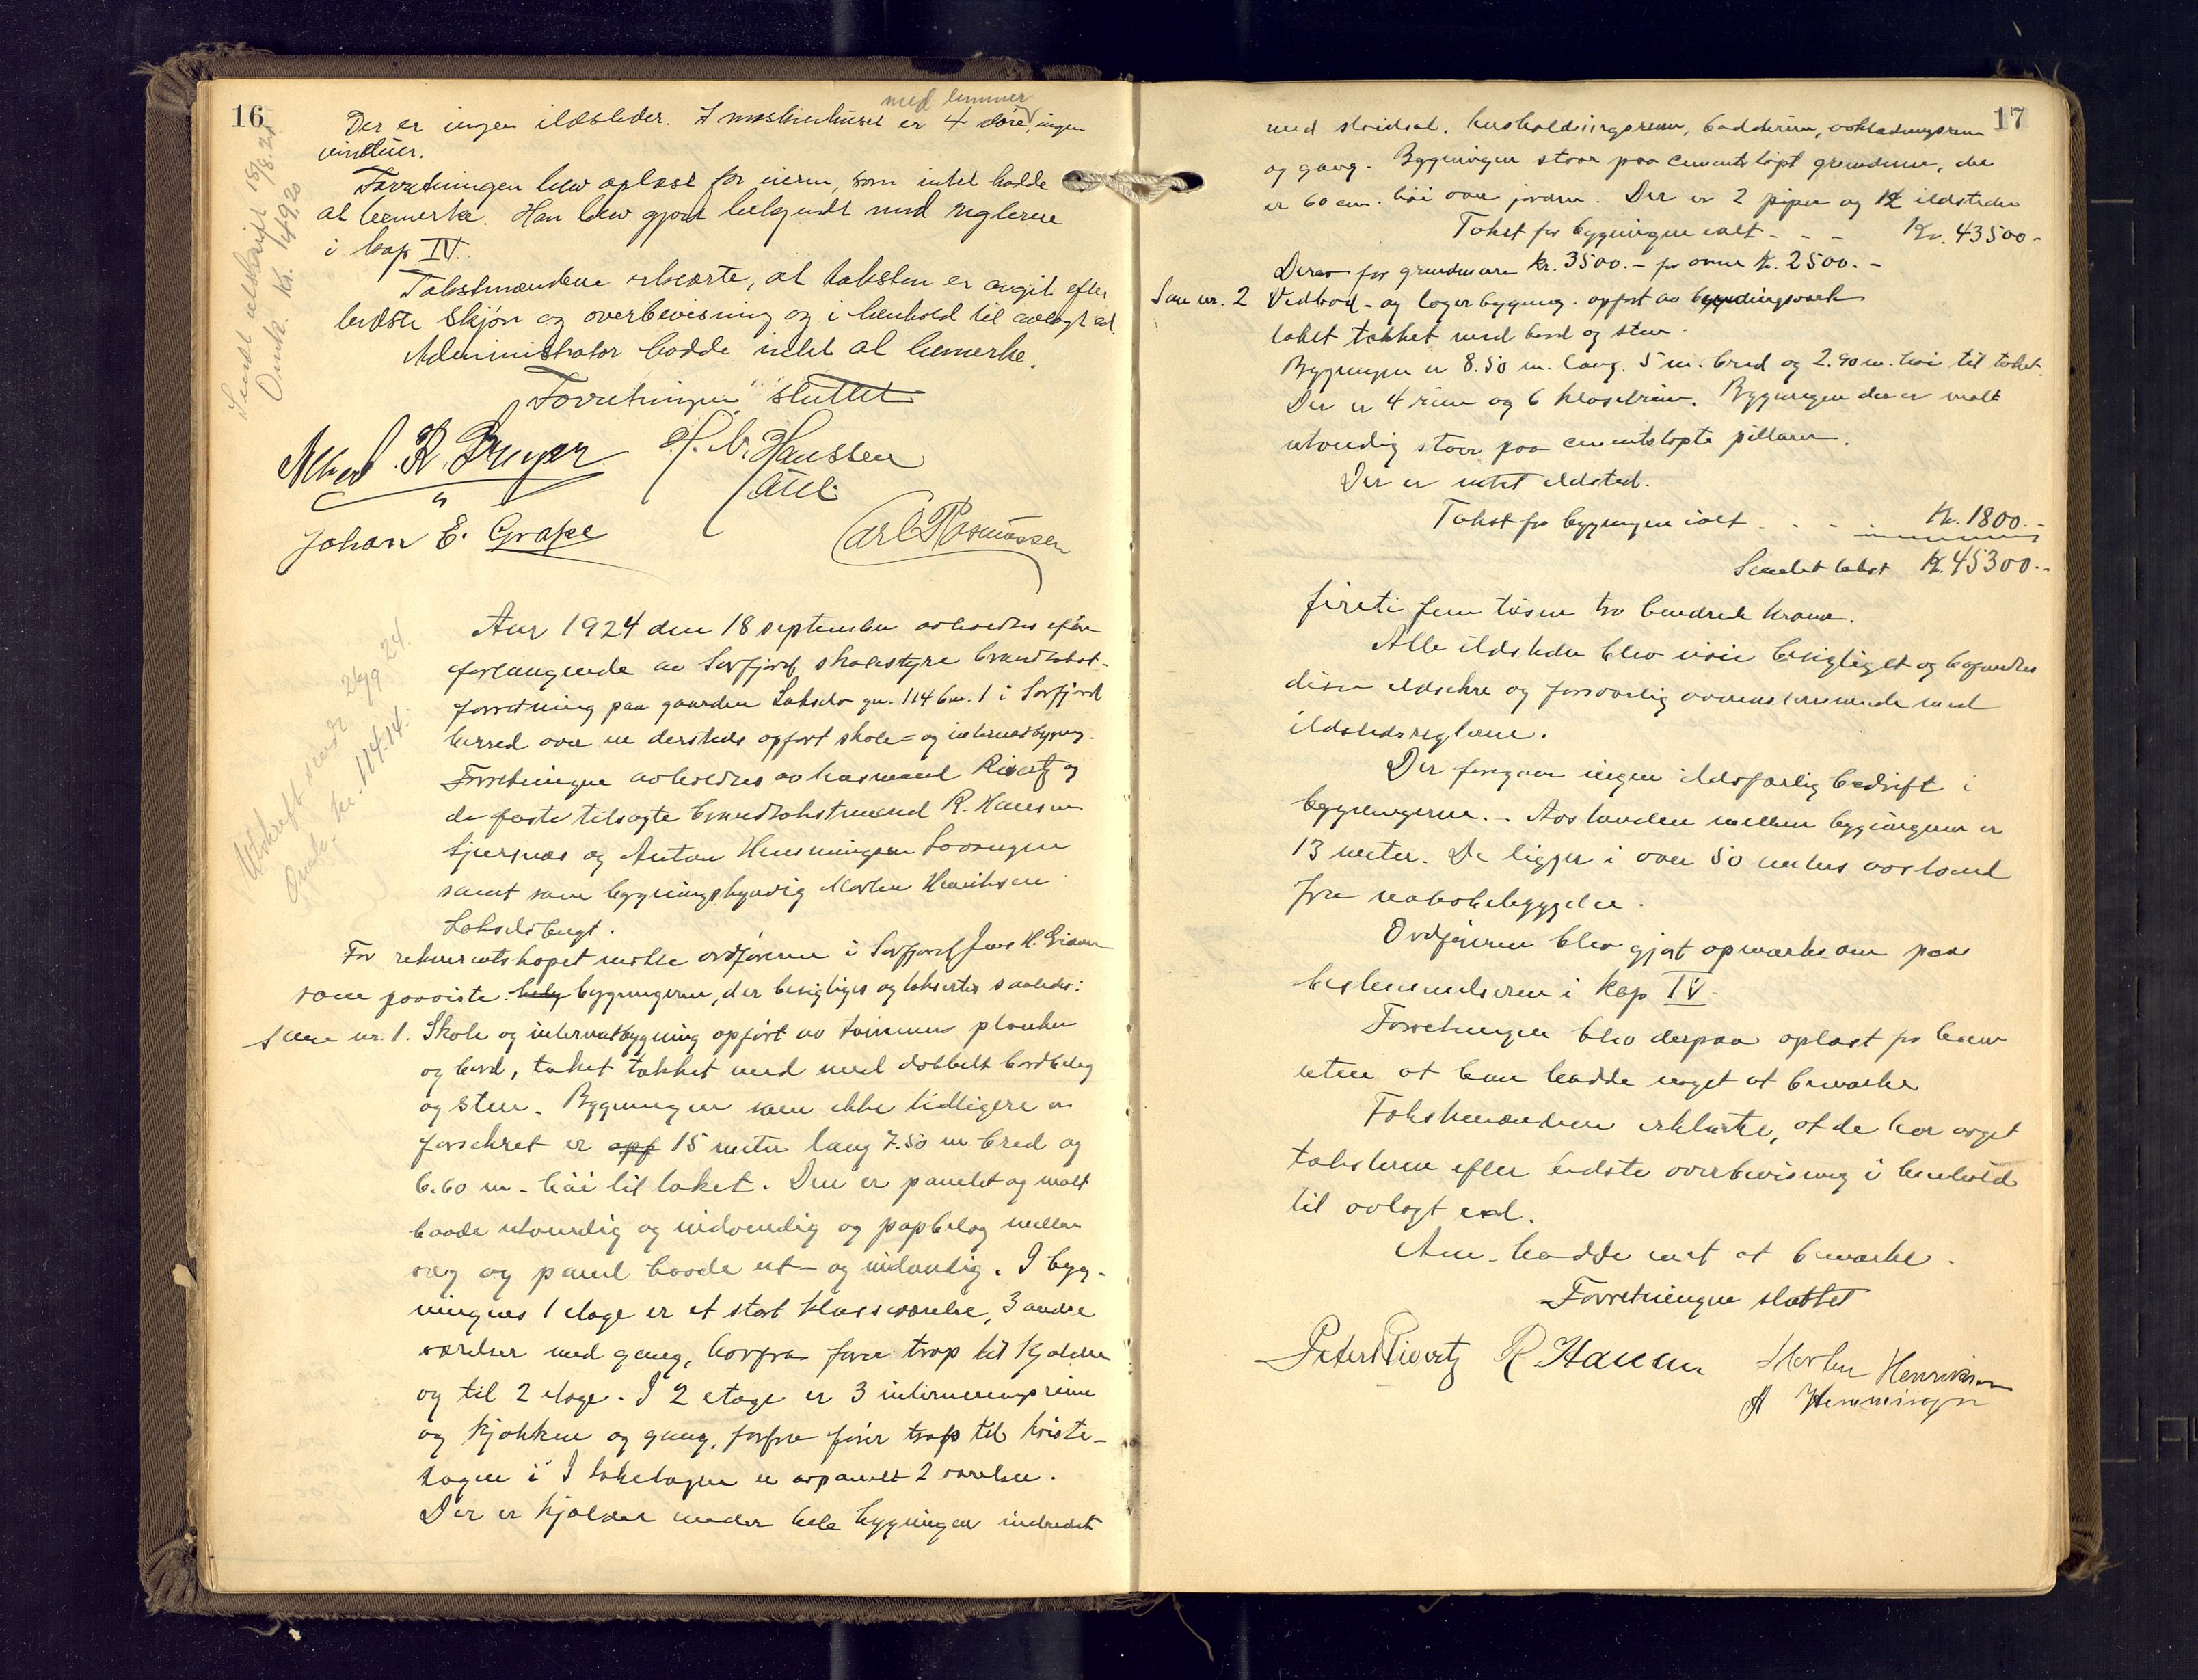 16
Der er ingen ildsteder. I maskinhuset er 4 døre, ingen
med lemmer
vinduer.
Forretningen blev oplæst for eieren, som intet hadde
at bemerke. Han blev gjort bekjendt med reglerne
i kap IV.
Takstmændene erklærte, at taksten er avgit efter
bedste skjøn og overbevisning og i henhold til avlagt ed.
Administrator hadde intet at bemerke.
Forretningen sluttet
H. Hanssen
Johan E. Grape
Carl Rasmussen
Sendt utskrift 18/8.24
Omk. Kr. 149.20
Aar 1924 den 18 september avholdtes efter
forlangende av Sørfjord skolestyre brandtakst-
forretning paa gaarden Lakselv gn. 114 bn. 1 i Sørfjord
herred over en dersteds opført skole- og internatbygning.
Forretningen avholdtes av lensmand Rivertz og
de faste tilsagte brandtakstmænd R. Hansen
Sjursnes og Anton Hemmingsen Lavangen
samt som bygningskyndig Morten Henriksen
Lakselvbugt.
Utskrift sendt 26/9 24.
Omk. kr. 114.14.
For rekvirentskapet møtte ordføreren i Sørfjord Jens H.
som paaviste bygningerne, der besigtiges og taksertes saaledes:
Litra nr. 1. Skole og internatbygning opført av tømmer planker
og bord, taket tækket med med dobbelt bordbelæg
og sten. Bygningen som ikke tidligere er
forsikret er opf 15 meter lang 7.50 m. bred og
6.60 m. høi til taket. Den er panelet og malt
baade utvendig og indvendig og papbelag mellem
væg og panel baade ut- og indvendig. I byg-
ningens 1 etage er et stort klasseværelse, 3 andre
værelser med gang, hvorfra fører trap til kjælder
og til 2 etage. I 2 etage er 3 interneringsrum
og kjøkken og gang, hvorfra fører trap til kviste-
tagen i I taketagen er avpanelt 2 værelser.
Der er kjælder under hele bygningen indredet
17
med sløidsal, husholdningsrum, badderum, avklædningsrum
og gang. Bygningen staar paa cementstøpt grundmur, der
er 60 cm. høi over jorden. Der er 2 piper og 12 ildsteder
Takst for bygningen ialt - - - Kr. 43500.-
Derav for grundmuren kr. 3500.- for ovner kr. 2500.-
nr. 2 Vedbod- og lagerbygning. opført av bygningsværk
taket tækket med bord og sten.
Bygningen er 8.50 m. lang. 5 m. bred og 2.90 m. høi til taket.
Der er 4 rum og 6 klosetrum. Bygningen der er malt
utvendig staar paa cementstøpte pillarer.
Der er intet ildsted.
Takst for bygningen ialt - - - Kr. 1800.-
Samlet takst Kr. 45300.-
firti fem tusen tre hundrede kroner.
Alle ildsteder blev nøie besigtiget og befandtes
disse ildsikre og forsvarlig overensstemmende med
ildstedsreglerne.
Der foregaar ingen ildsfarlig bedrift i
bygningerne. - Avstanden mellem bygningerne er
13 meter. De ligger i over 50 meters avstand
fra nabobebyggelse.
Ordføreren blev gjort opmerksom paa
bestemmelserne i kap IV.
Forretningen blev derpaa oplæst for ham
uten at han hadde noget at bemærke
Takstmændene erklærte, at de har avgit
taksterne efter bedste overbevisning i henhold
til avlagt ed.
Adm. hadde intet at bemærke.
Forretningen sluttet
Peter Rivertz R Hansen Morten Henriksen
A Hemmingsen